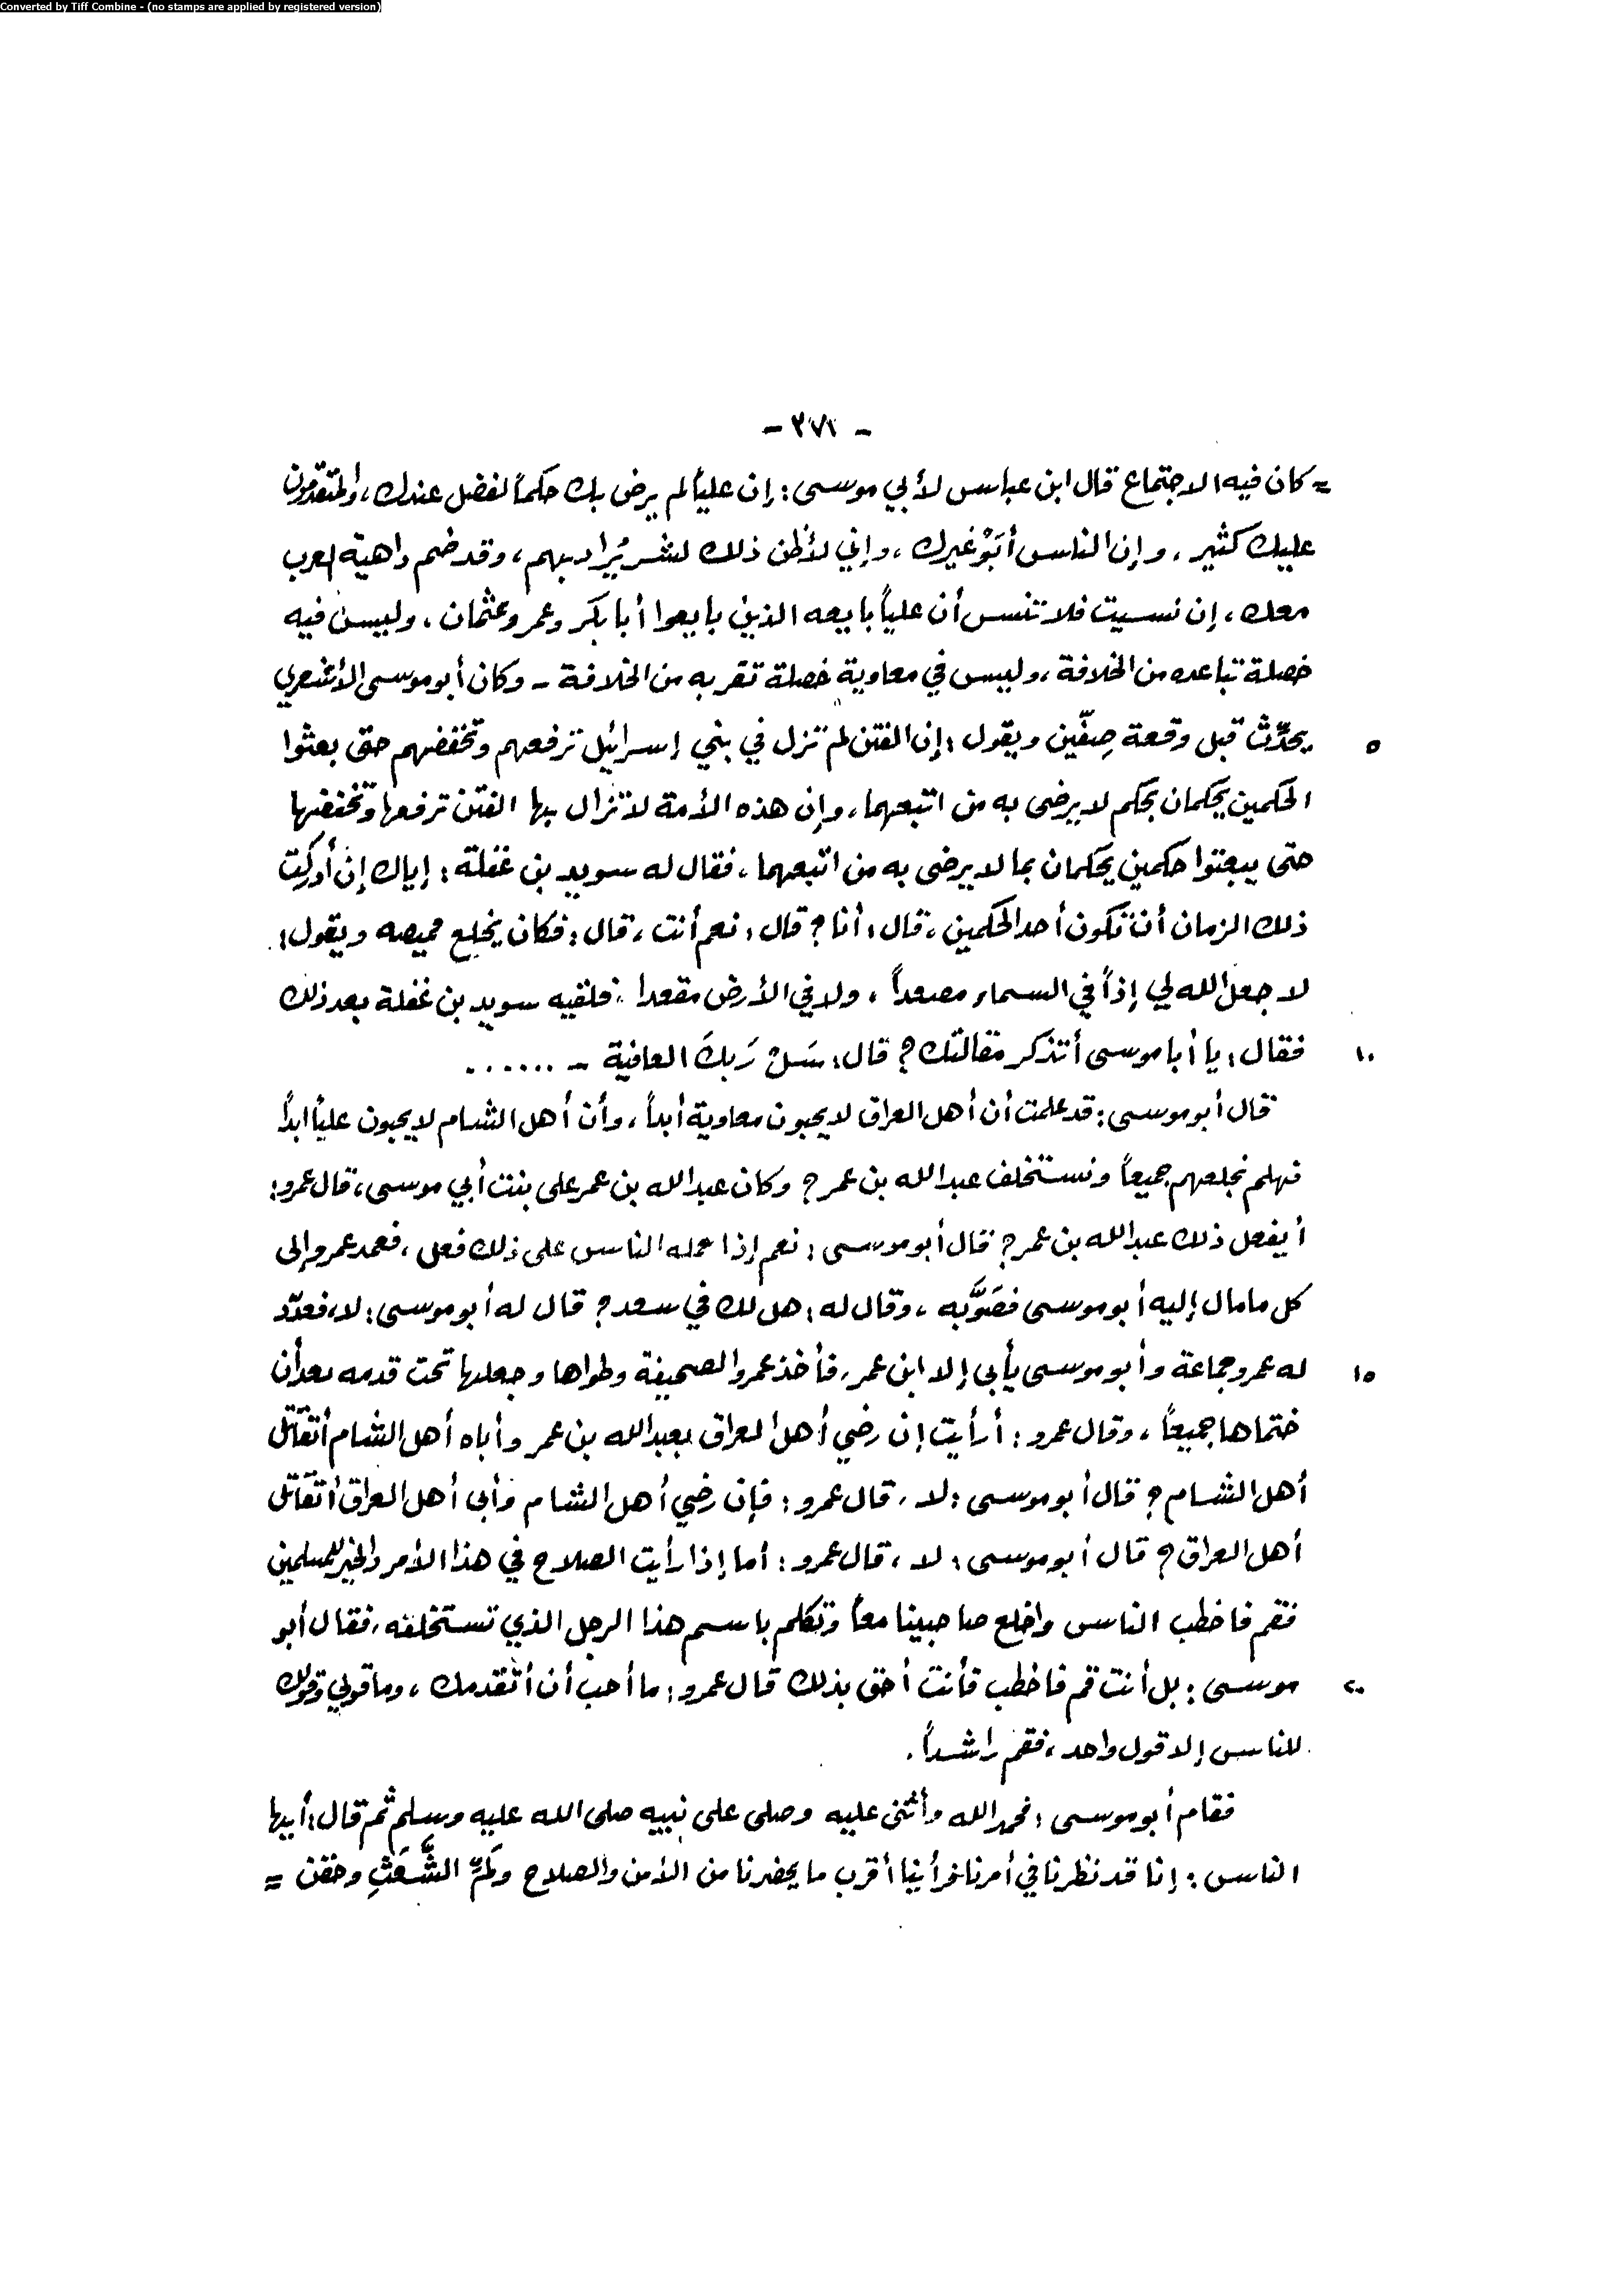 Converted by Tiff Combine - (no stamps are applied by registered version)
- ٣٧١ -
= كان فيه الاجتماع قال ابن عباس لأبي موسى: إن علياً لم يرض بك حكماً لفضل عندك، والمتقدمون
عليك كثير، وإن الناس أبَوْ غيرك، وإني لأظن ذلك لشر يُراد بهم، وقد ضم داهية العرب
معك، إن نسيت فلا تنس أن علياً بايعه الذين بايعوا أبا بكر وعمر وعثمان، وليس فيه
خصلة تباعده من الخلافة، وليس في معاوية خصلة تقربه من الخلافة - وكان أبو موسى الأشعري
٥ يحدِّث قبل وقعة صِفّين ويقول: إن الفتن لم تزل في بني إسرائيل ترفعهم وتخفضهم حتى بعثوا
الحكمين يحكمان بحكم لا يرضى به من اتبعهما، وإن هذه الأمة لا تزال بها الفتن ترفعها وتخفضها
حتى يبعثوا حكمين يحكمان بما لا يرضى به من اتبعهما، فقال له سويد بن غفلة: إياك إن أدركت
ذلك الزمان أن تكون أحد الحكمين، قال: أنا؟ قال: نعم أنت، قال: فكان يخلع قميصه ويقول:
لا جعل الله لي إذاً في السماء مصعداً، ولا في الأرض مقعدا، فلقيه سويد بن غفلة بعد ذلك
١٠ فقال: يا أبا موسى أتذكر مقالتك؟ قال: سَلْ رَبكَ العافية - ......
قال أبو موسى: قد علمت أن أهل العراق لا يحبون معاوية أبداً، وأن أهل الشام لا يحبون علياً ابداً
فهلم نخلعهم جميعاً ونستخلف عبد الله بن عمر؟ وكان عبد الله بن عمر على بنت أبي موسى، قال عمرو:
أيفعل ذلك عبد الله بن عمر؟ قال أبو موسى: نعم إذا حمله الناس على ذلك فعل، فعمد عمرو إلى
كل ما مال إليه أبو موسى فصَوَّبه، وقال له: هل لك في سعد؟ قال له أبو موسى: لا، فعدّد
١٥ له عمرو جماعة وأبو موسى يأبى إلا ابن عمر، فأخذ عمرو الصحيفة وطواها وجعلها تحت قدمه بعد أن
ختماها جميعاً، وقال عمرو: أرأيت إن رضي أهل العراق بعبد الله بن عمر وأباه أهل الشام أتقاتل
أهل الشام؟ قال أبو موسى: لا، قال عمرو: فإن رضي أهل الشام وأبى أهل العراق أتقاتل
أهل العراق؟ قال أبو موسى: لا، قال عمرو: أما إذا رأيت الصلاح في هذا الأمر والخير للمسلمين
فقم فاخطب الناس واخلع صاحبينا معاً وتكلم باسم هذا الرجل الذي تستخلفه، فقال أبو
٢٠ موسى: بل أنت قم فاخطب فأنت أحق بذلك قال عمرو: ما أحب أن أتقدمك، وما قولي وقولك
للناس إلا قول واحد، فقم راشداً.
فقام أبو موسى: فحمد الله وأثنى عليه وصلى على نبيه صلى الله عليه وسلم ثم قال: أيها
الناس: إنا قد نظرنا في أمرنا فرأينا أقرب ما يحضرنا من الأمن والصلاح ولَمِّ الشَّعَثِ وحقن =